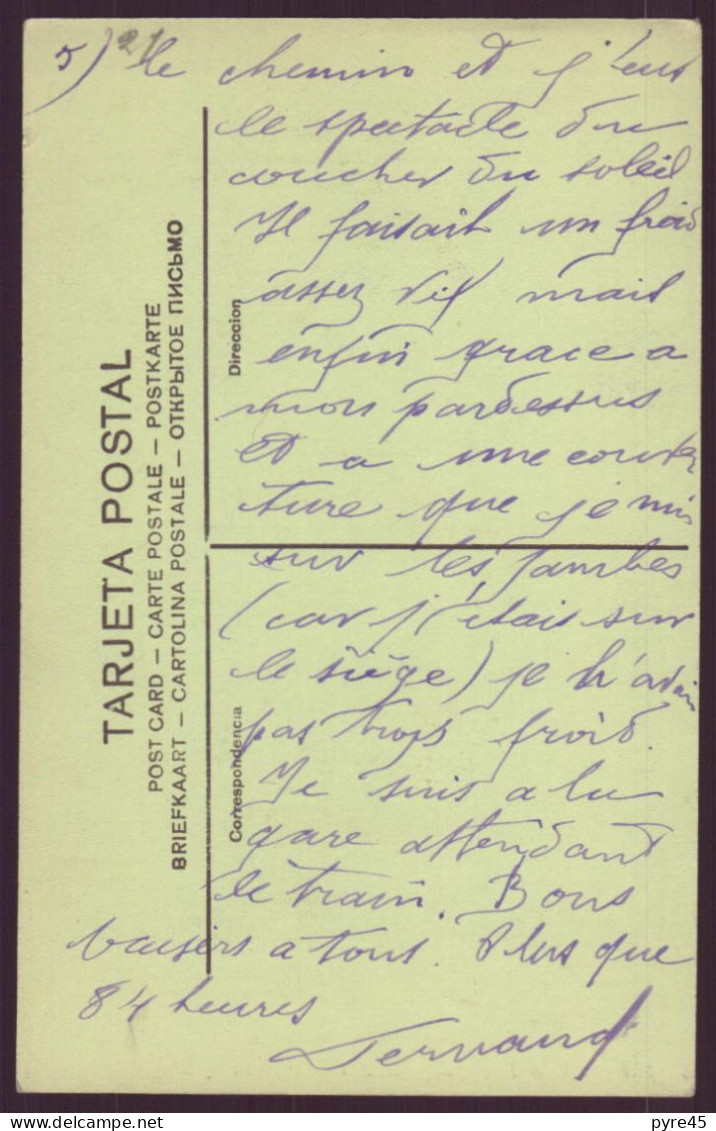 5) 21 le chemin et j'eus
le spectacle du
coucher du soleil
Il faisait un froid
assez vif mais
enfin grace a
mon pardessus
Et a une couver
ture que je mis
sur les jambes
(car j'étais sur
le siège) je n'avais
pas trop froid.
Je suis a la
gare attendant
le train. Bons
baisers a tous. Plus que
84 heures
Fernand
TARJETA POSTAL
POST CARD – CARTE POSTALE – POSTKARTE
BRIEFKAART – CARTOLINA POSTALE – ОТКРЫТОЕ ПИСЬМО
Direccion
Correspondencia
pyre45